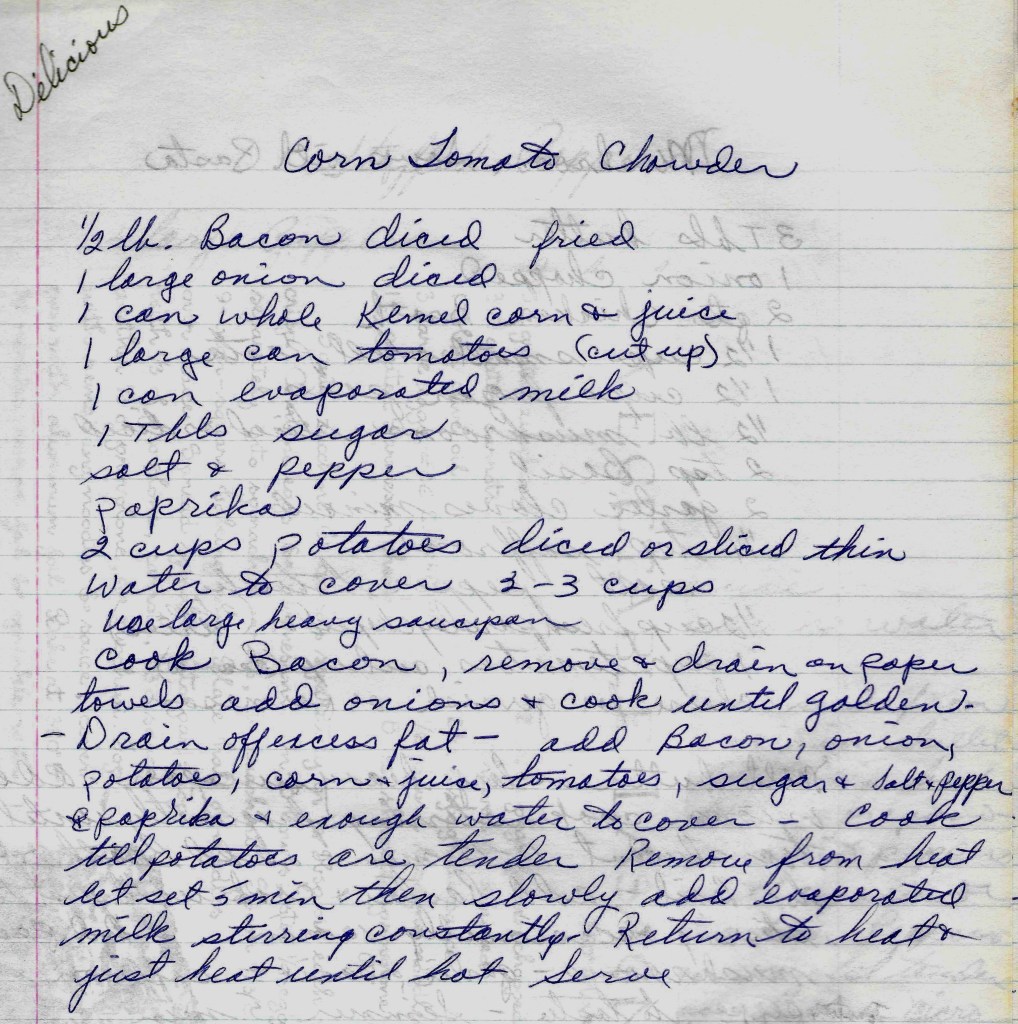 Delicious
Corn Tomato Chowder
1/2 lb. Bacon diced fried
1 large onion diced
1 can whole Kernel corn & juice
1 large can tomatoes (cut up)
1 can evaporated milk
1 Tbls sugar
salt & pepper
paprika
2 cups potatoes diced or sliced thin
water to cover 2-3 cups
use large heavy saucepan
cook Bacon, remove & drain on paper
towels add onions & cook until golden-
- Drain off excess fat - add Bacon, onion,
potatoes, corn & juice, tomatoes, sugar & salt & pepper
& paprika & enough water to cover - Cook
till potatoes are tender Remove from heat
let set 5 min then slowly add evaporated
milk stirring constantly- Return to heat &
just heat until hot Serve